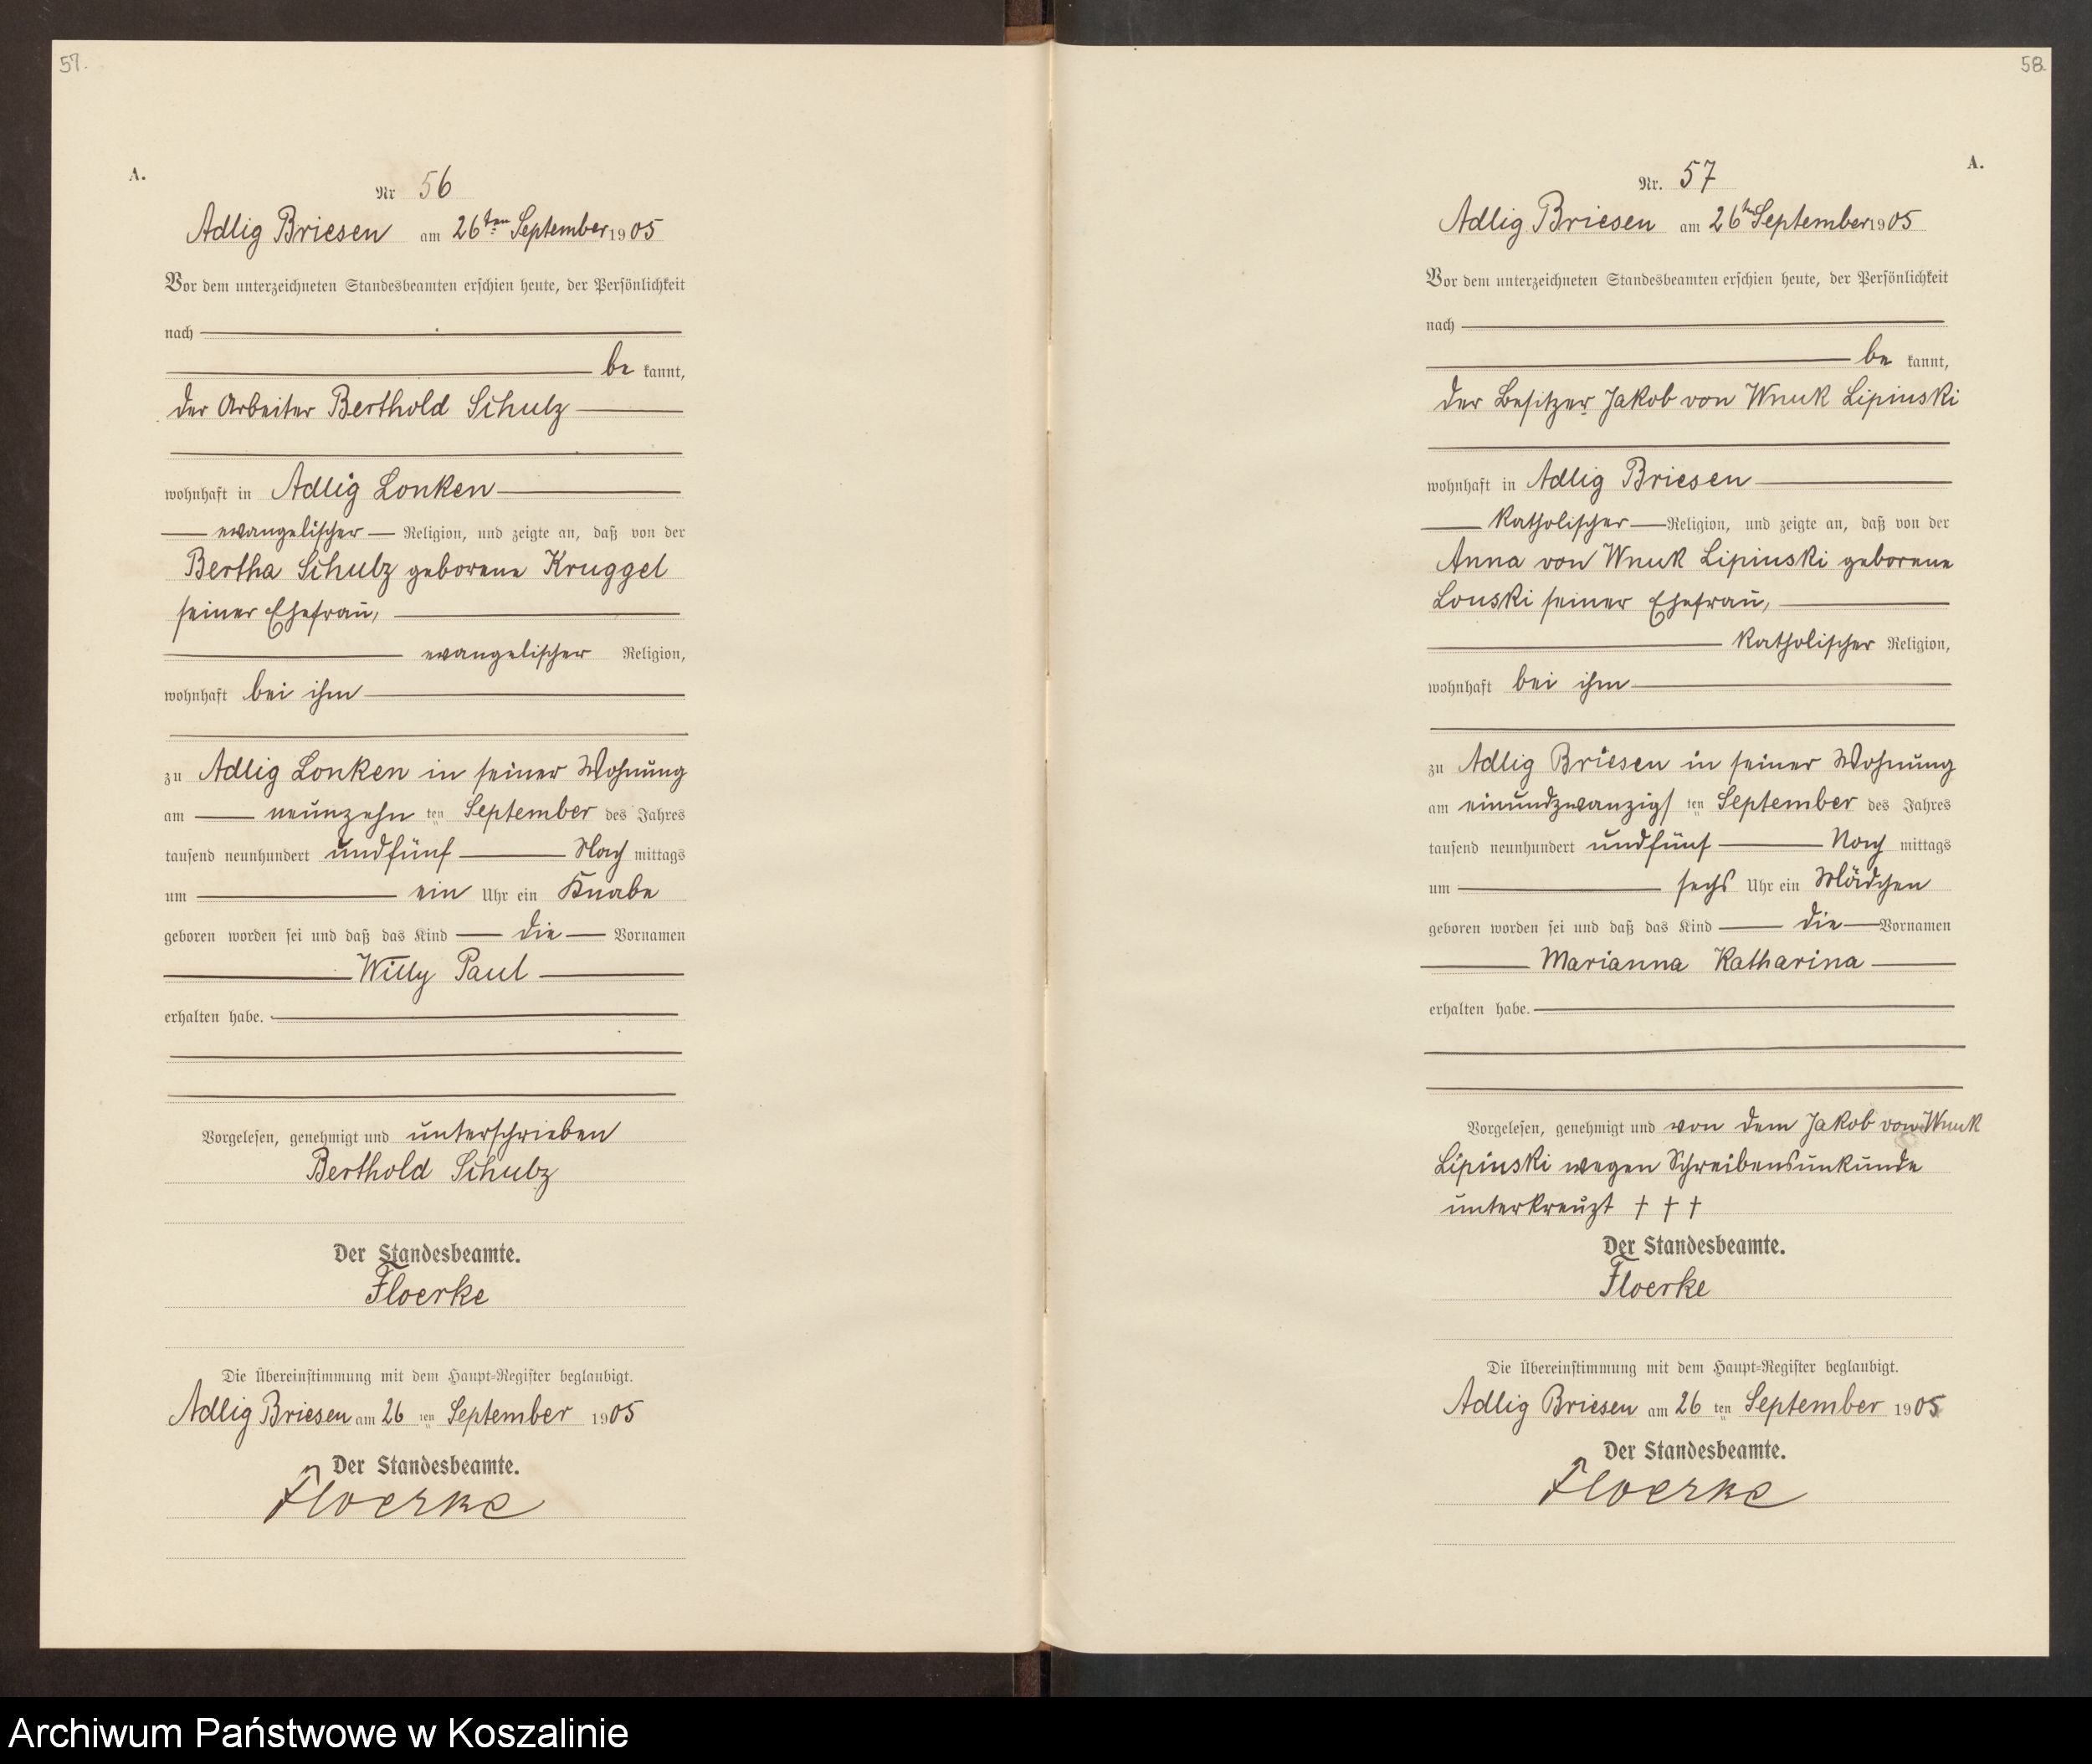 57.
A.
Nr 56
Adlig Briesen am 26ten September 1905
Vor dem unterzeichneten Standesbeamten erschien heute, der Persönlichkeit
nach
be kannt,
der Arbeiter Berthold Schulz
wohnhaft in Adlig Lonken
evangelischer Religion, und zeigte an, daß von der
Bertha Schulz geborene Kruggel
seiner Ehefrau,
evangelischer Religion,
wohnhaft bei ihm
zu Adlig Lonken in seiner Wohnung
am neunzehn ten September des Jahres
tausend neunhundert undfünf Nach mittags
um ein Uhr ein Knabe
geboren worden sei und daß das Kind die Vornamen
Willy Paul
erhalten habe.
Vorgelesen, genehmigt und unterschrieben
Berthold Schulz
Der Standesbeamte.
Floerke
Die Übereinstimmung mit dem Haupt-Register beglaubigt.
Adlig Briesen am 26 ten September 1905
Der Standesbeamte.
Floerke
58.
A.
Nr. 57
Adlig Briesen am 26ten September 1905
Vor dem unterzeichneten Standesbeamten erschien heute, der Persönlichkeit
nach
be kannt,
der Besitzer Jakob von Wnuk Lipinski
wohnhaft in Adlig Briesen
katholischer Religion, und zeigte an, daß von der
Anna von Wnuk Lipinski geborene
Lonski seiner Ehefrau,
katholischer Religion,
wohnhaft bei ihm
zu Adlig Briesen in seiner Wohnung
am einundzwanzigs ten September des Jahres
tausend neunhundert undfünf Nach mittags
um sechs Uhr ein Mädchen
geboren worden sei und daß das Kind die Vornamen
Marianna Katharina
erhalten habe.
Vorgelesen, genehmigt und von dem Jakob von Wnuk
Lipinski wegen Schreibensunkunde
unterkreuzt † † †
Der Standesbeamte.
Floerke
Die Übereinstimmung mit dem Haupt-Register beglaubigt.
Adlig Briesen am 26 ten September 1905
Der Standesbeamte.
Floerke
Archiwum Państwowe w Koszalinie